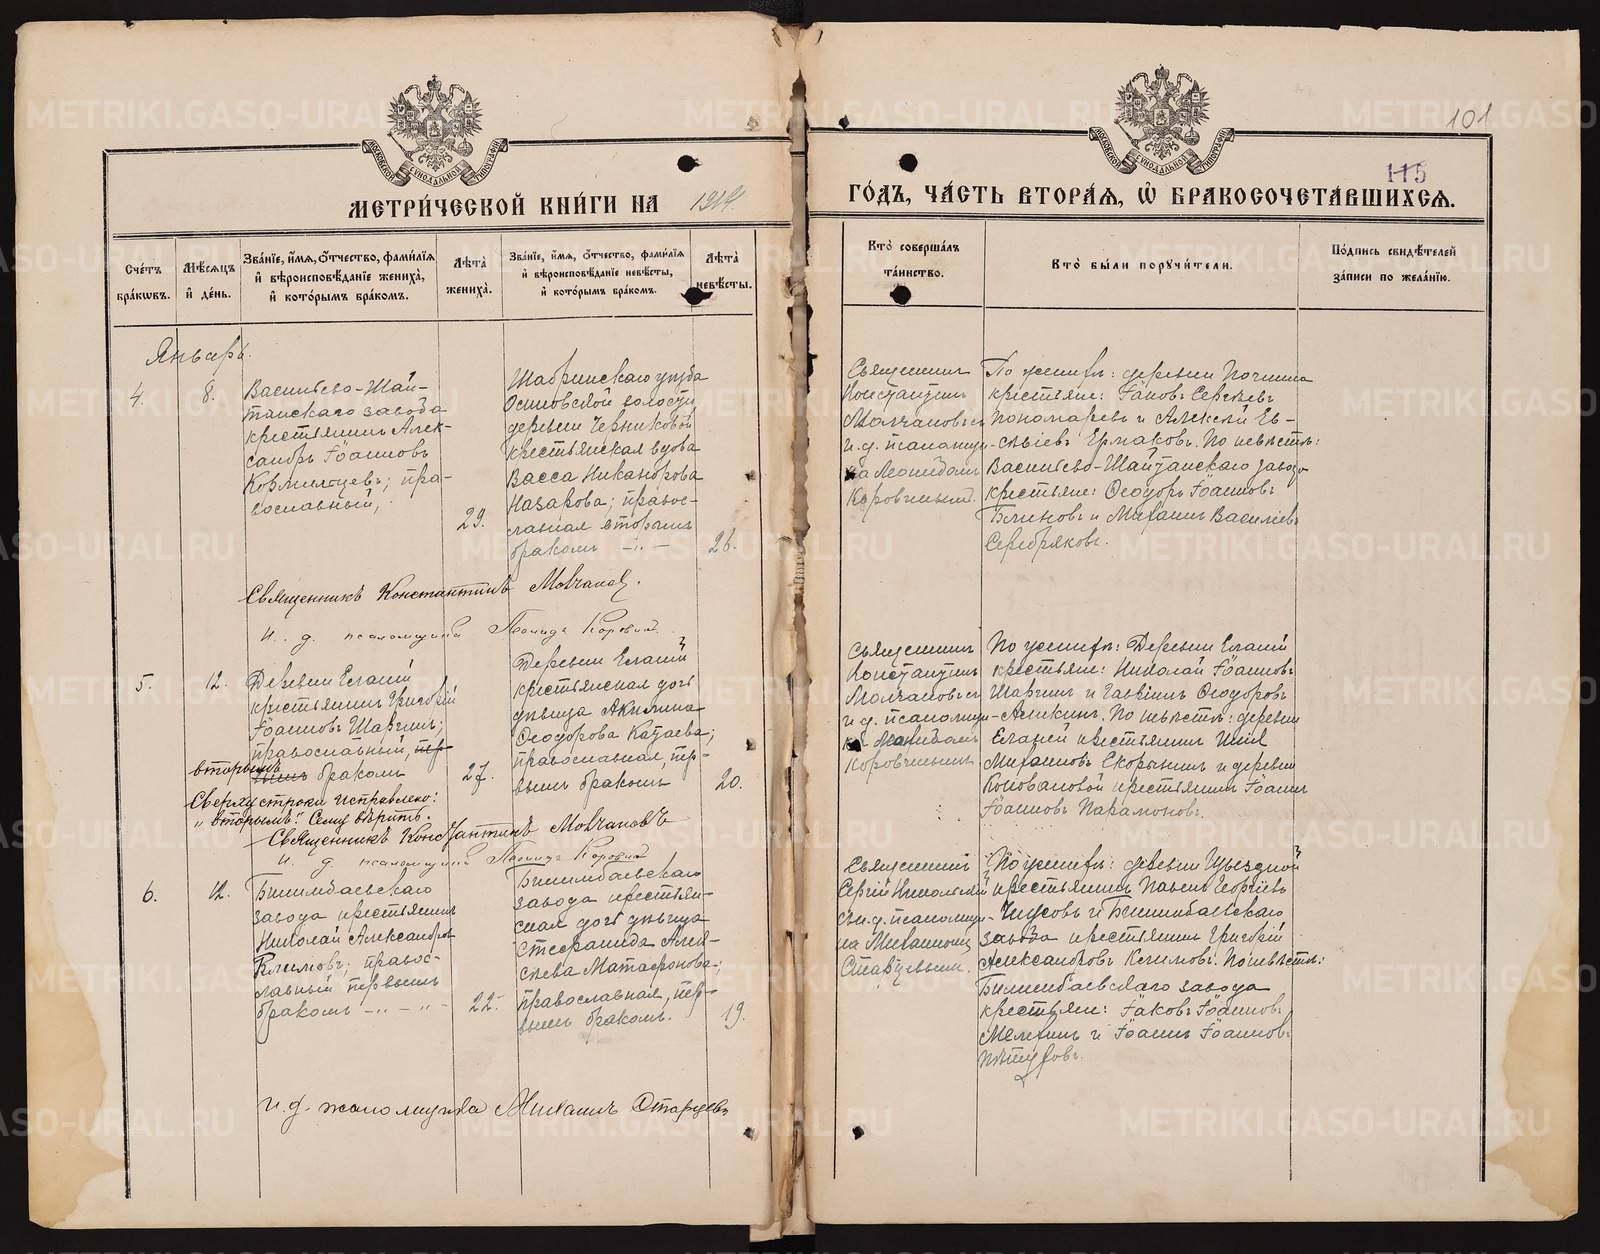 101
115
МЕТРИ́ЧЕСКОЙ КНИ́ГИ НА 1914
ГО́ДЪ, ЧА́СТЬ ВТОРА́Я, Ѽ БРАКОСОЧЕТА́ВШИХСЯ.
Сче́тъ бра́кѡвъ.
Мѣ́сяцъ и́ де́нь.
Зва́нїе, и҆́мя, о҆́тчество, фами́лїя и҆ вѣроисповѣ́данїе жениха̀, и҆ кото́рымъ бра́комъ.
Лѣ́та жениха̀.
Зва́нїе, и҆́мя, о҆́тчество, фами́лїя и҆ вѣроисповѣ́данїе невѣ́сты, и҆ кото́рымъ бра́комъ.
Лѣ́та невѣ́сты.
Кто̀ соверша́лъ та́инство.
Кто̀ бы́ли поручи́тели.
По́дпись свидѣ́телей за́писи по жела́нїю.
Январь.
4.
8.
Васильево-Шай-
танскаго завода
крестьянинъ Алек-
сандръ Іоанновъ
Кормильцевъ; пра-
вославный;
29.
Осиновской волости
деревни Черниковой
крестьянская вдова
Васса Никанорова
Назарова; правос-
лавная вторымъ
бракомъ
26.
Священникъ
Константинъ
Молчановъ
и.д. псаломщи-
ка Леонидомъ
Коровинымъ.
По женихѣ: деревни Починка
крестьяне: Іаковъ Сергѣевъ
Пономаревъ и Алексѣй Ев-
сѣевъ Ермаковъ. По невѣстѣ:
Васильево-Шайтанскаго завода
крестьяне: Ѳеодоръ Іоанновъ
Блиновъ и Михаилъ Васильевъ
Серебряковъ.
Священникъ Константинъ Молчановъ.
и. д. псаломщика Леонидъ Коровинъ.
5.
12.
Деревни Еланой
крестьянинъ Григорій
Іоанновъ Шаргинъ;
православный, пер-
вторымъ
вымъ бракомъ
27.
Деревни Еланой
крестьянская дочь
дѣвица Акилина
Ѳеодорова Катаева;
православная, пер-
вымъ бракомъ
20.
Священникъ
Константинъ
Молчановъ
и д. псаломщи-
ка Леонидомъ
Коровинымъ
По женихѣ: Деревни Еланой
крестьяне: Николай Іоанновъ
Шаргинъ и Гавріилъ Ѳеодоровъ
Аликинъ. По невѣстѣ: деревни
Еланой крестьянинъ
Михаиловъ Скорынинъ и деревни
Коноваловой крестьянинъ Іоаннъ
Іоанновъ Парамоновъ.
Сверху строки исправлено:
"вторымъ". Сему вѣрить.
Священникъ Константинъ Молчановъ
и. д. псаломщика Леонидъ Коровинъ
6.
12.
Билимбаевскаго
завода крестьянинъ
Николай Александровъ
Климовъ; правос-
лавный первымъ
бракомъ
22.
Билимбаевскаго
завода крестьян-
ская дочь дѣвица
Стефанида Алек-
сѣева Матафонова;
православная, пер-
вымъ бракомъ.
19.
Священникъ
Сергій Никольскій
съ и.д. псаломщи-
ка Михаиломъ
Старцевымъ.
По женихѣ: деревни
крестьянинъ Павелъ Георгіевъ
Чусовъ и Билимбаевскаго
завода крестьянинъ Григорій
Александровъ Климовъ. По невѣстѣ:
Билимбаевскаго завода
крестьяне: Іаковъ Іоанновъ
Мелехинъ и Іоаннъ Іоанновъ
Пѣтуховъ.
и.д. псаломщика Михаилъ Старцевъ
METRIKI.GASO-URAL.RU